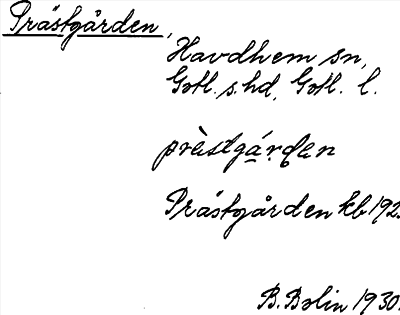 Prästgården,
Havdhem sn,
Gotl. s. hd, Gotl. l.
prästgárdan
Prästgården kb 192
B. Bolin 1930.